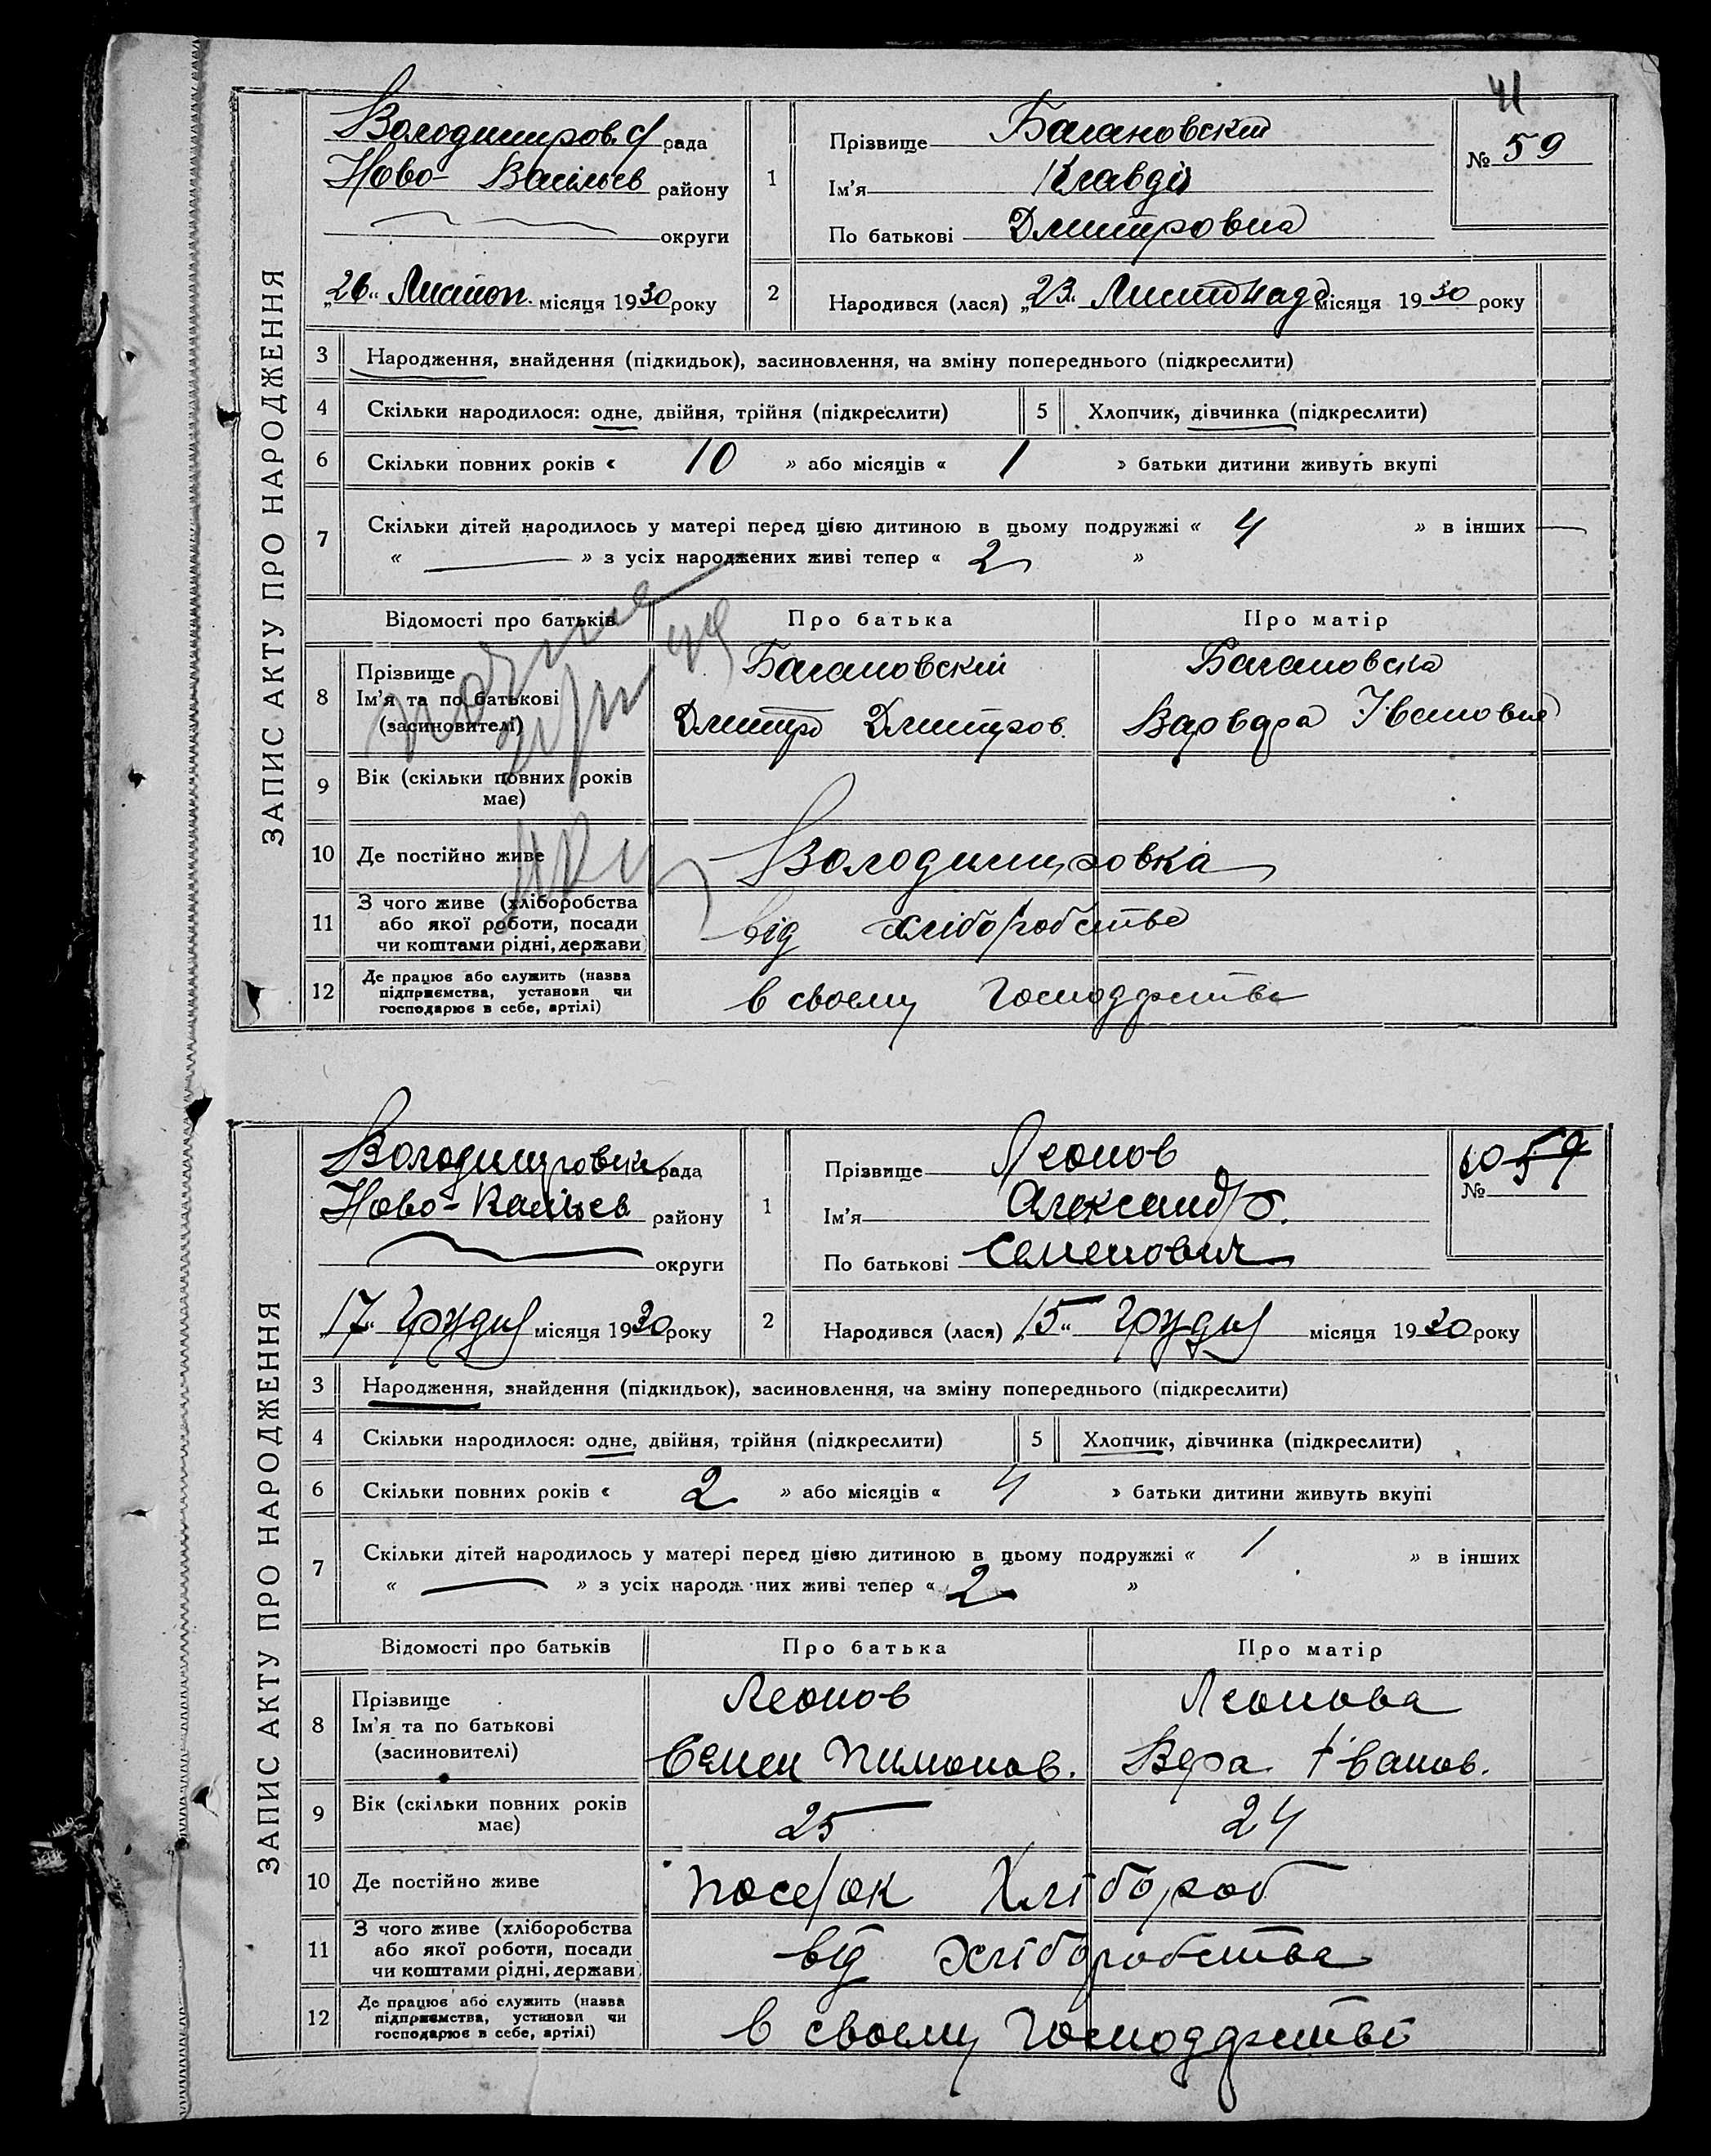 41
ЗАПИС АКТУ ПРО НАРОДЖЕННЯ
рада
Ново- Васільєв району
округи
„26“ Листоп. місяця 1930 року
1
Прізвище
Ім'я Клавдія
По батькові Дмитровна
№ 59
2
Народився (лася) „23“ Листопада місяця 1930 року
3 Народження, знайдення (підкидьок), засиновлення, на зміну попереднього (підкреслити)
4 Скільки народилося: одне, двійня, трійня (підкреслити) 5 Хлопчик, дівчинка (підкреслити)
6 Скільки повних років « 10 » або місяців « 1 » батьки дитини живуть вкупі
7 Скільки дітей народилось у матері перед цією дитиною в цьому подружжі « 4 » в інших —
« — » з усіх народжених живі тепер « 2 »
Відомості про батьків Про батька Про матір
8 Прізвище
Ім'я та по батькові
(засиновителі)
Дмитро Дмитров.
Варвара Івановна
9 Вік (скільки повних років
має)
10 Де постійно живе Володимировка
11 З чого живе (хліборобства
або якої роботи, посади
чи коштами рідні, держави)
від хліборобства
12 Де працює або служить (назва
підприємства, установи чи
господарює в себе, артілі)
в своему господарстві
ЗАПИС АКТУ ПРО НАРОДЖЕННЯ
рада
Ново- Васільєв району
округи
„17“ Грудня місяця 1930 року
1
Прізвище Леонов
Ім'я Александр.
По батькові Семенович
60 59
№
2
Народився (лася) „15“ Грудня місяця 1930 року
3 Народження, знайдення (підкидьок), засиновлення, на зміну попереднього (підкреслити)
4 Скільки народилося: одне, двійня, трійня (підкреслити) 5 Хлопчик, дівчинка (підкреслити)
6 Скільки повних років « 2 » або місяців « 4 » батьки дитини живуть вкупі
7 Скільки дітей народилось у матері перед цією дитиною в цьому подружжі « 1 » в інших
« — » з усіх народж них живі тепер « 2 »
Відомості про батьків Про батька Про матір
8 Прізвище
Ім'я та по батькові
(засиновителі)
Леонов
Семен Пимонов.
Леонова
Вера Іванов.
9 Вік (скільки повних років
має)
25
24
10 Де постійно живе поселок Хлібороб
11 З чого живе (хліборобства
або якої роботи, посади
чи коштами рідні, держави)
від хліборобства
12 Де працює або служить (назва
підприємства, установи чи
господарює в себе, артілі)
в своему господарстві